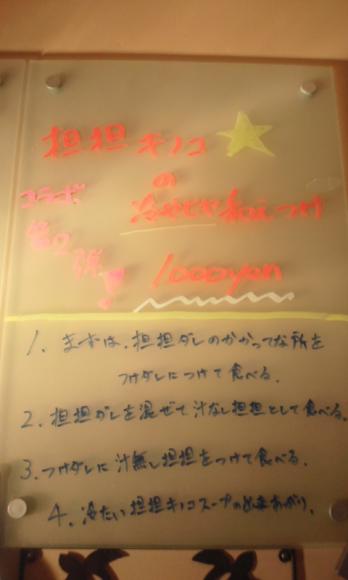 担担キノコ
の
冷やしや和えつけ
コラボ
第2弾!
1000yen
1. まずは、担担ダレのかかってな所を
つけダレにつけて食べる。
2. 担担ダレを混ぜて汁なし担担として食べる。
3. つけダレに汁無し担担をつけて食べる。
4. 冷たい担担キノコスープの出来あがり。